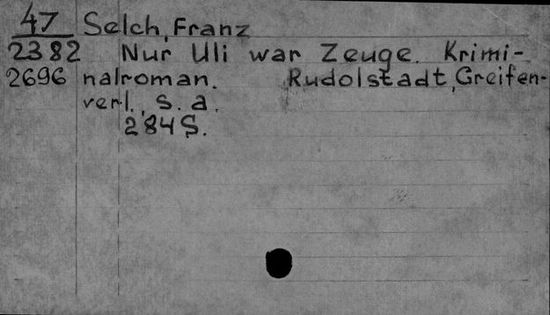 47 Selch, Franz
2382 Nur Uli war Zeuge. Krimi-
2696 nalroman. Rudolstadt, Greifen-
verl., s. a.
284 S.